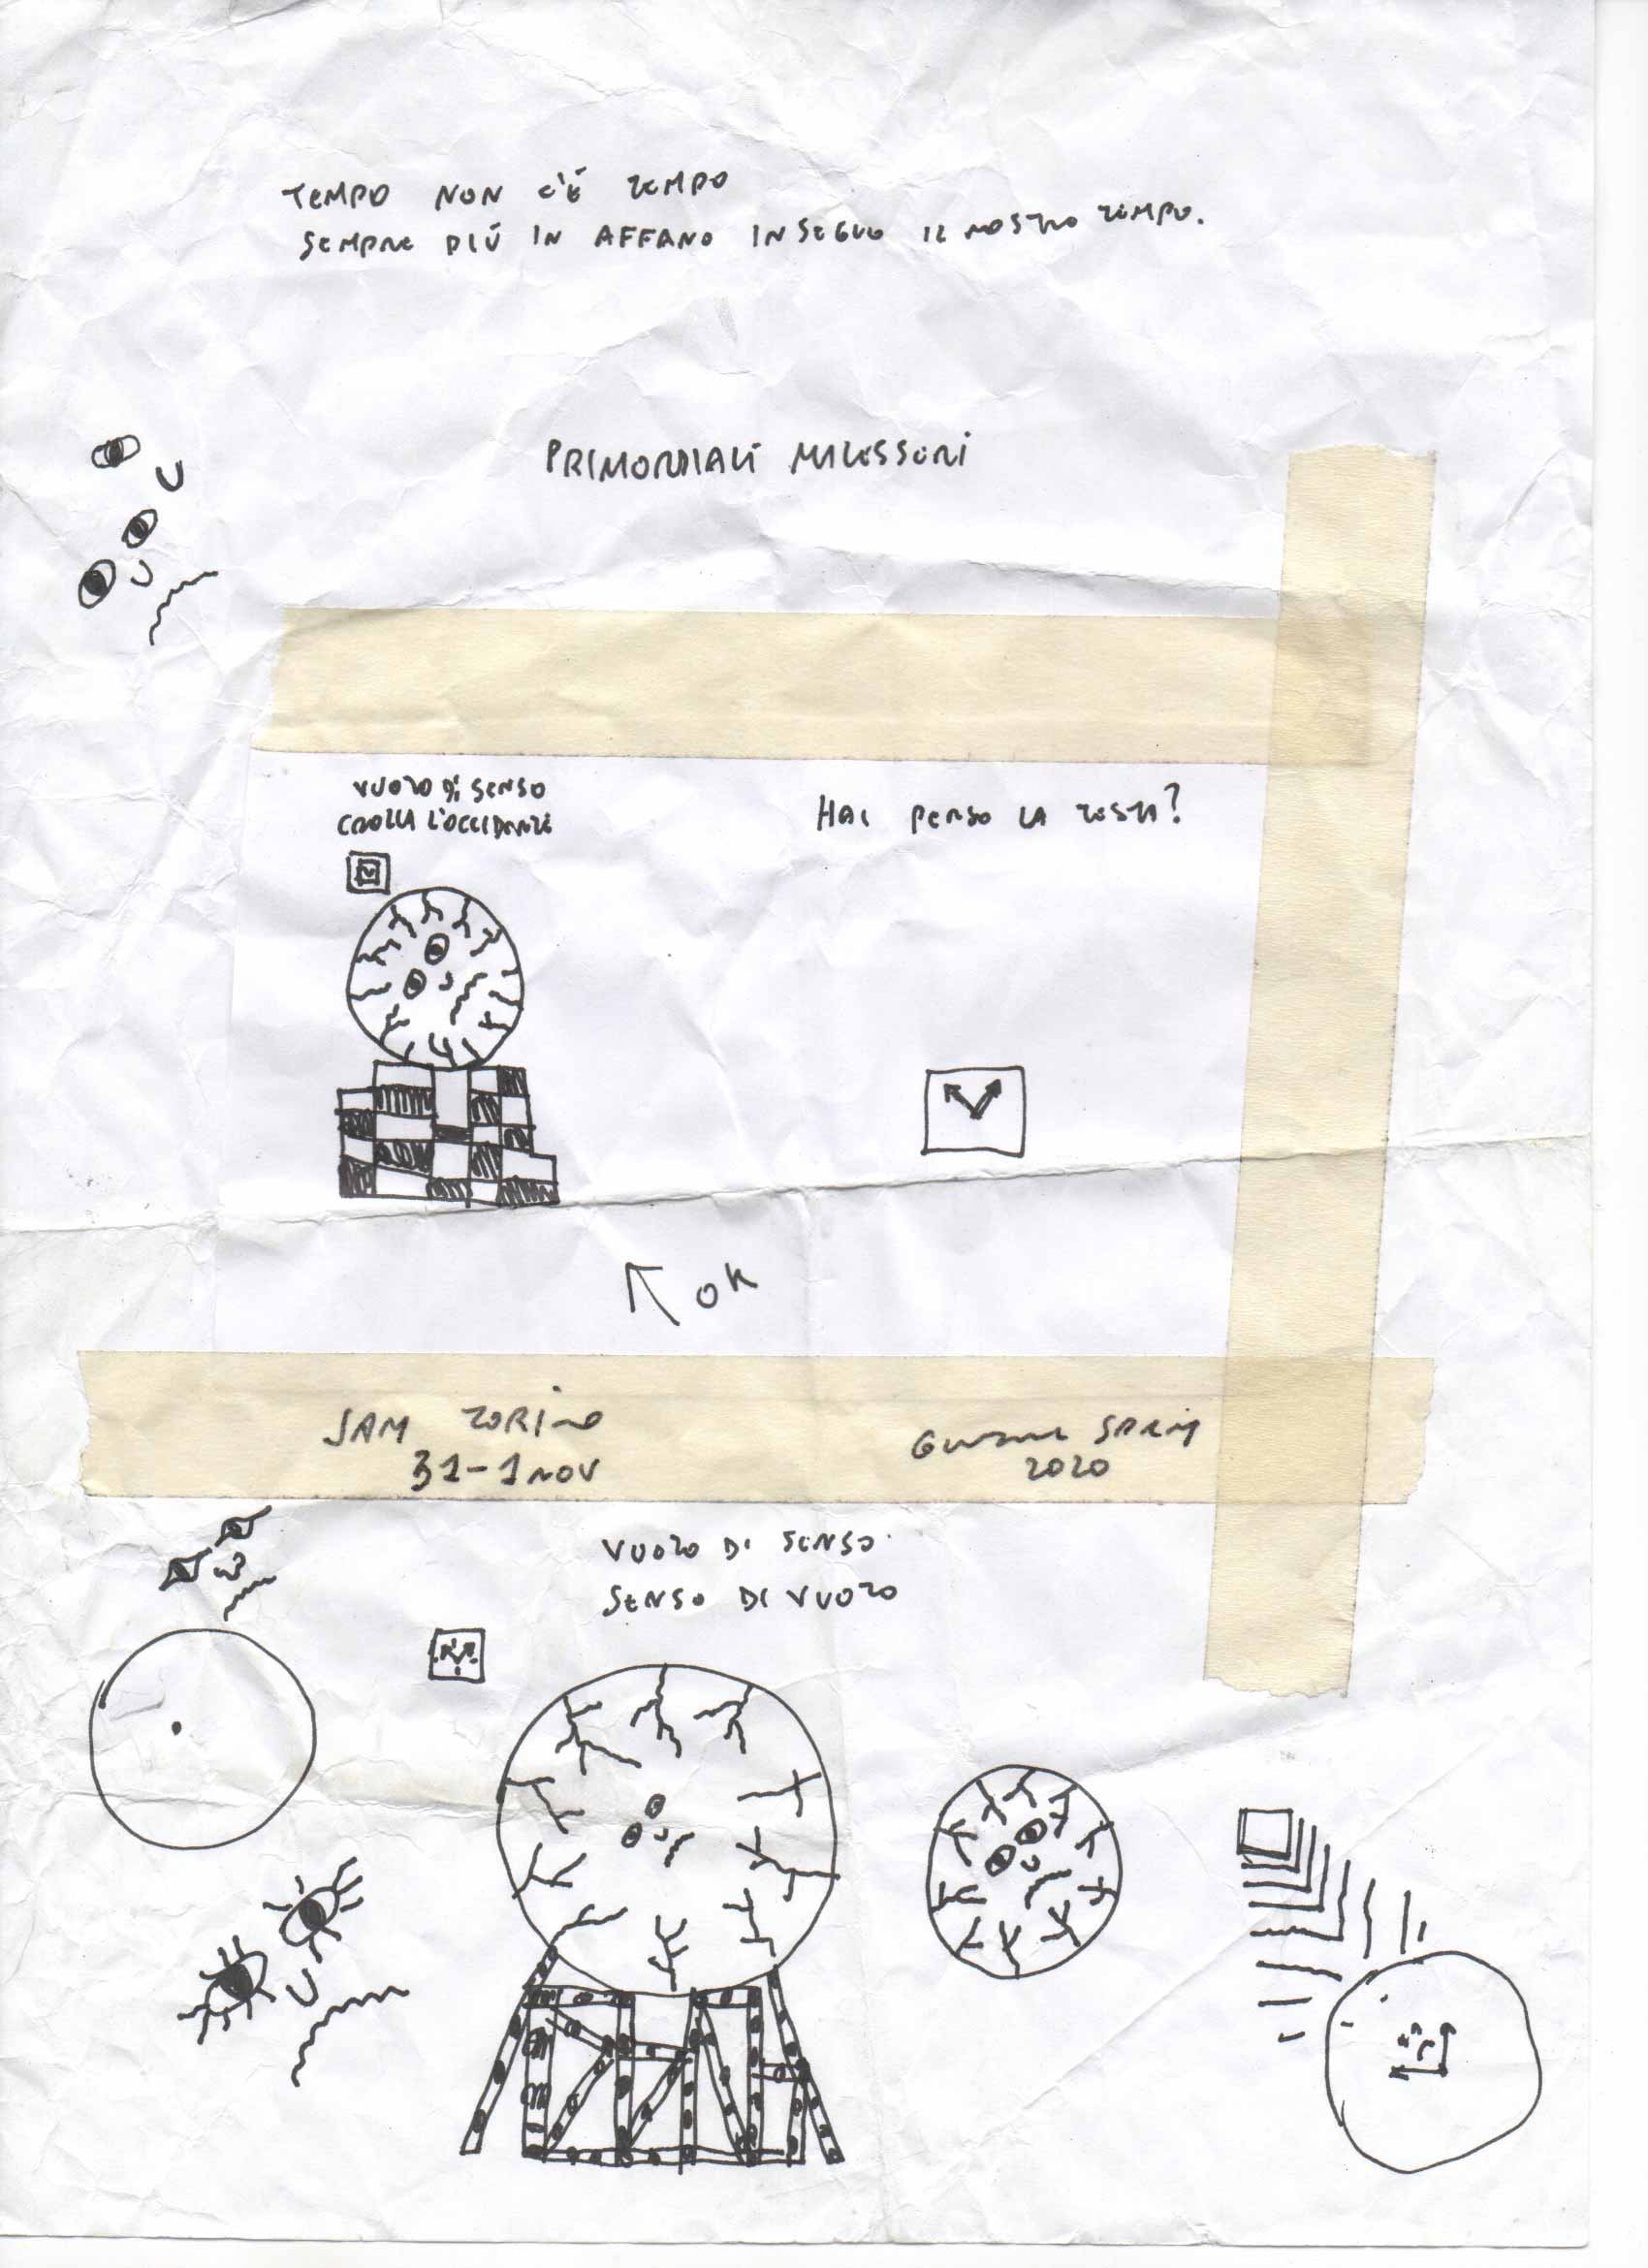 TEMPO NON C'È TEMPO
SEMPRE PIÙ IN AFFANO INSEGUO IL NOSTRO TEMPO.
PRIMORDIALI MALESSERI
VUOTO DI SENSO
CROLLA L'OCCIDENTE
HAI PERSO LA TESTA?
OK
JAM TORINO
31-1 NOV
2020
VUOTO DI SENSO
SENSO DI VUOTO